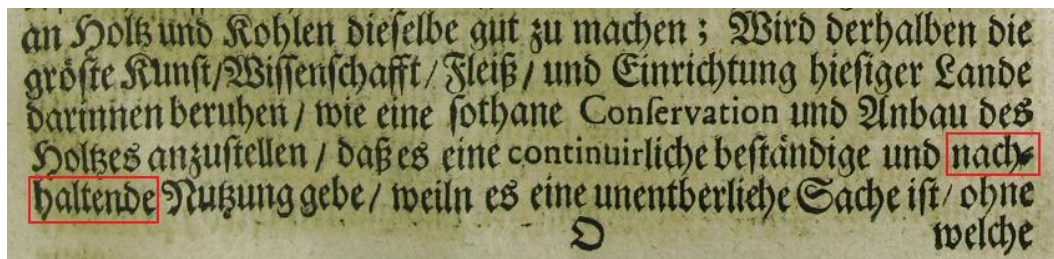 an Holtz und Kohlen dieselbe gut zu machen; Wird derhalben die
gröste Kunst/Wissenschafft/Fleiß/ und Einrichtung hiesiger Lande
darinnen beruhen / wie eine sothane Conservation und Anbau des
Holtzes anzustellen / daß es eine continuirliche beständige und nach-
haltende Nutzung gebe/ weiln es eine unentberliche Sache ist/ ohne
O welche